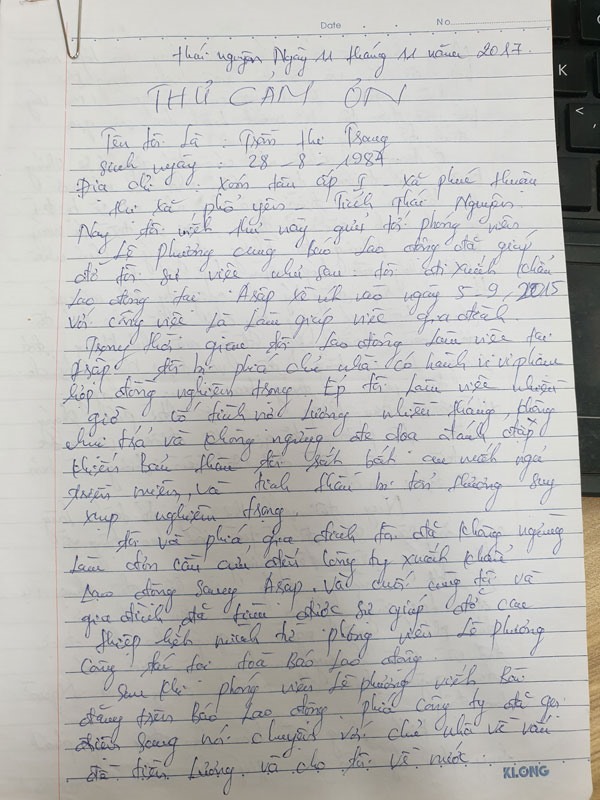 Date No
Thái nguyên Ngày 11 tháng 11 năm 2017.
THƯ CẢM ƠN
Tên tôi là : Trần thị Trang
Sinh ngày : 28 - 8 - 1987
Địa chỉ : Xóm tân ấp I xã phúc thuận
thị xã phổ yên - Tỉnh Thái Nguyên
Nay tôi viết thư này gửi tới phóng viên
Lê Phương cùng Báo Lao động đã giúp
đỡ tôi sự việc như sau: tôi đi xuất khẩu
Lao động tại Ả rập xê út vào ngày 5 - 9 - 2015
với công việc là làm giúp việc gia đình
Trong thời gian tôi lao động làm việc tại
Ả rập tôi bị phía chủ nhà có hành vi vi phạm
hợp đồng nghiêm trọng. Ép tôi làm việc nhiều
giờ cố tình nợ lương nhiều tháng không
chịu trả và không ngừng đe dọa đánh đập
khiến bản thân tôi
triền miên, và tinh thần bị tổn thương suy
sụp nghiêm trọng.
tôi và phía gia đình tôi đã không ngừng
làm đơn cầu cứu đến công ty xuất khẩu
Lao động sang Ả rập. Và cuối cùng tôi và
gia đình đã tìm được sự giúp đỡ can
thiệp hết mình từ phóng viên Lê Phương
công tác tại toà Báo Lao động.
Sau khi phóng viên Lê phương viết Bài
đăng trên Báo Lao động. phía công ty đã gọi
điện sang nói chuyện với chủ nhà về vấn
đề tiền lương và cho tôi về nước.
KLONG